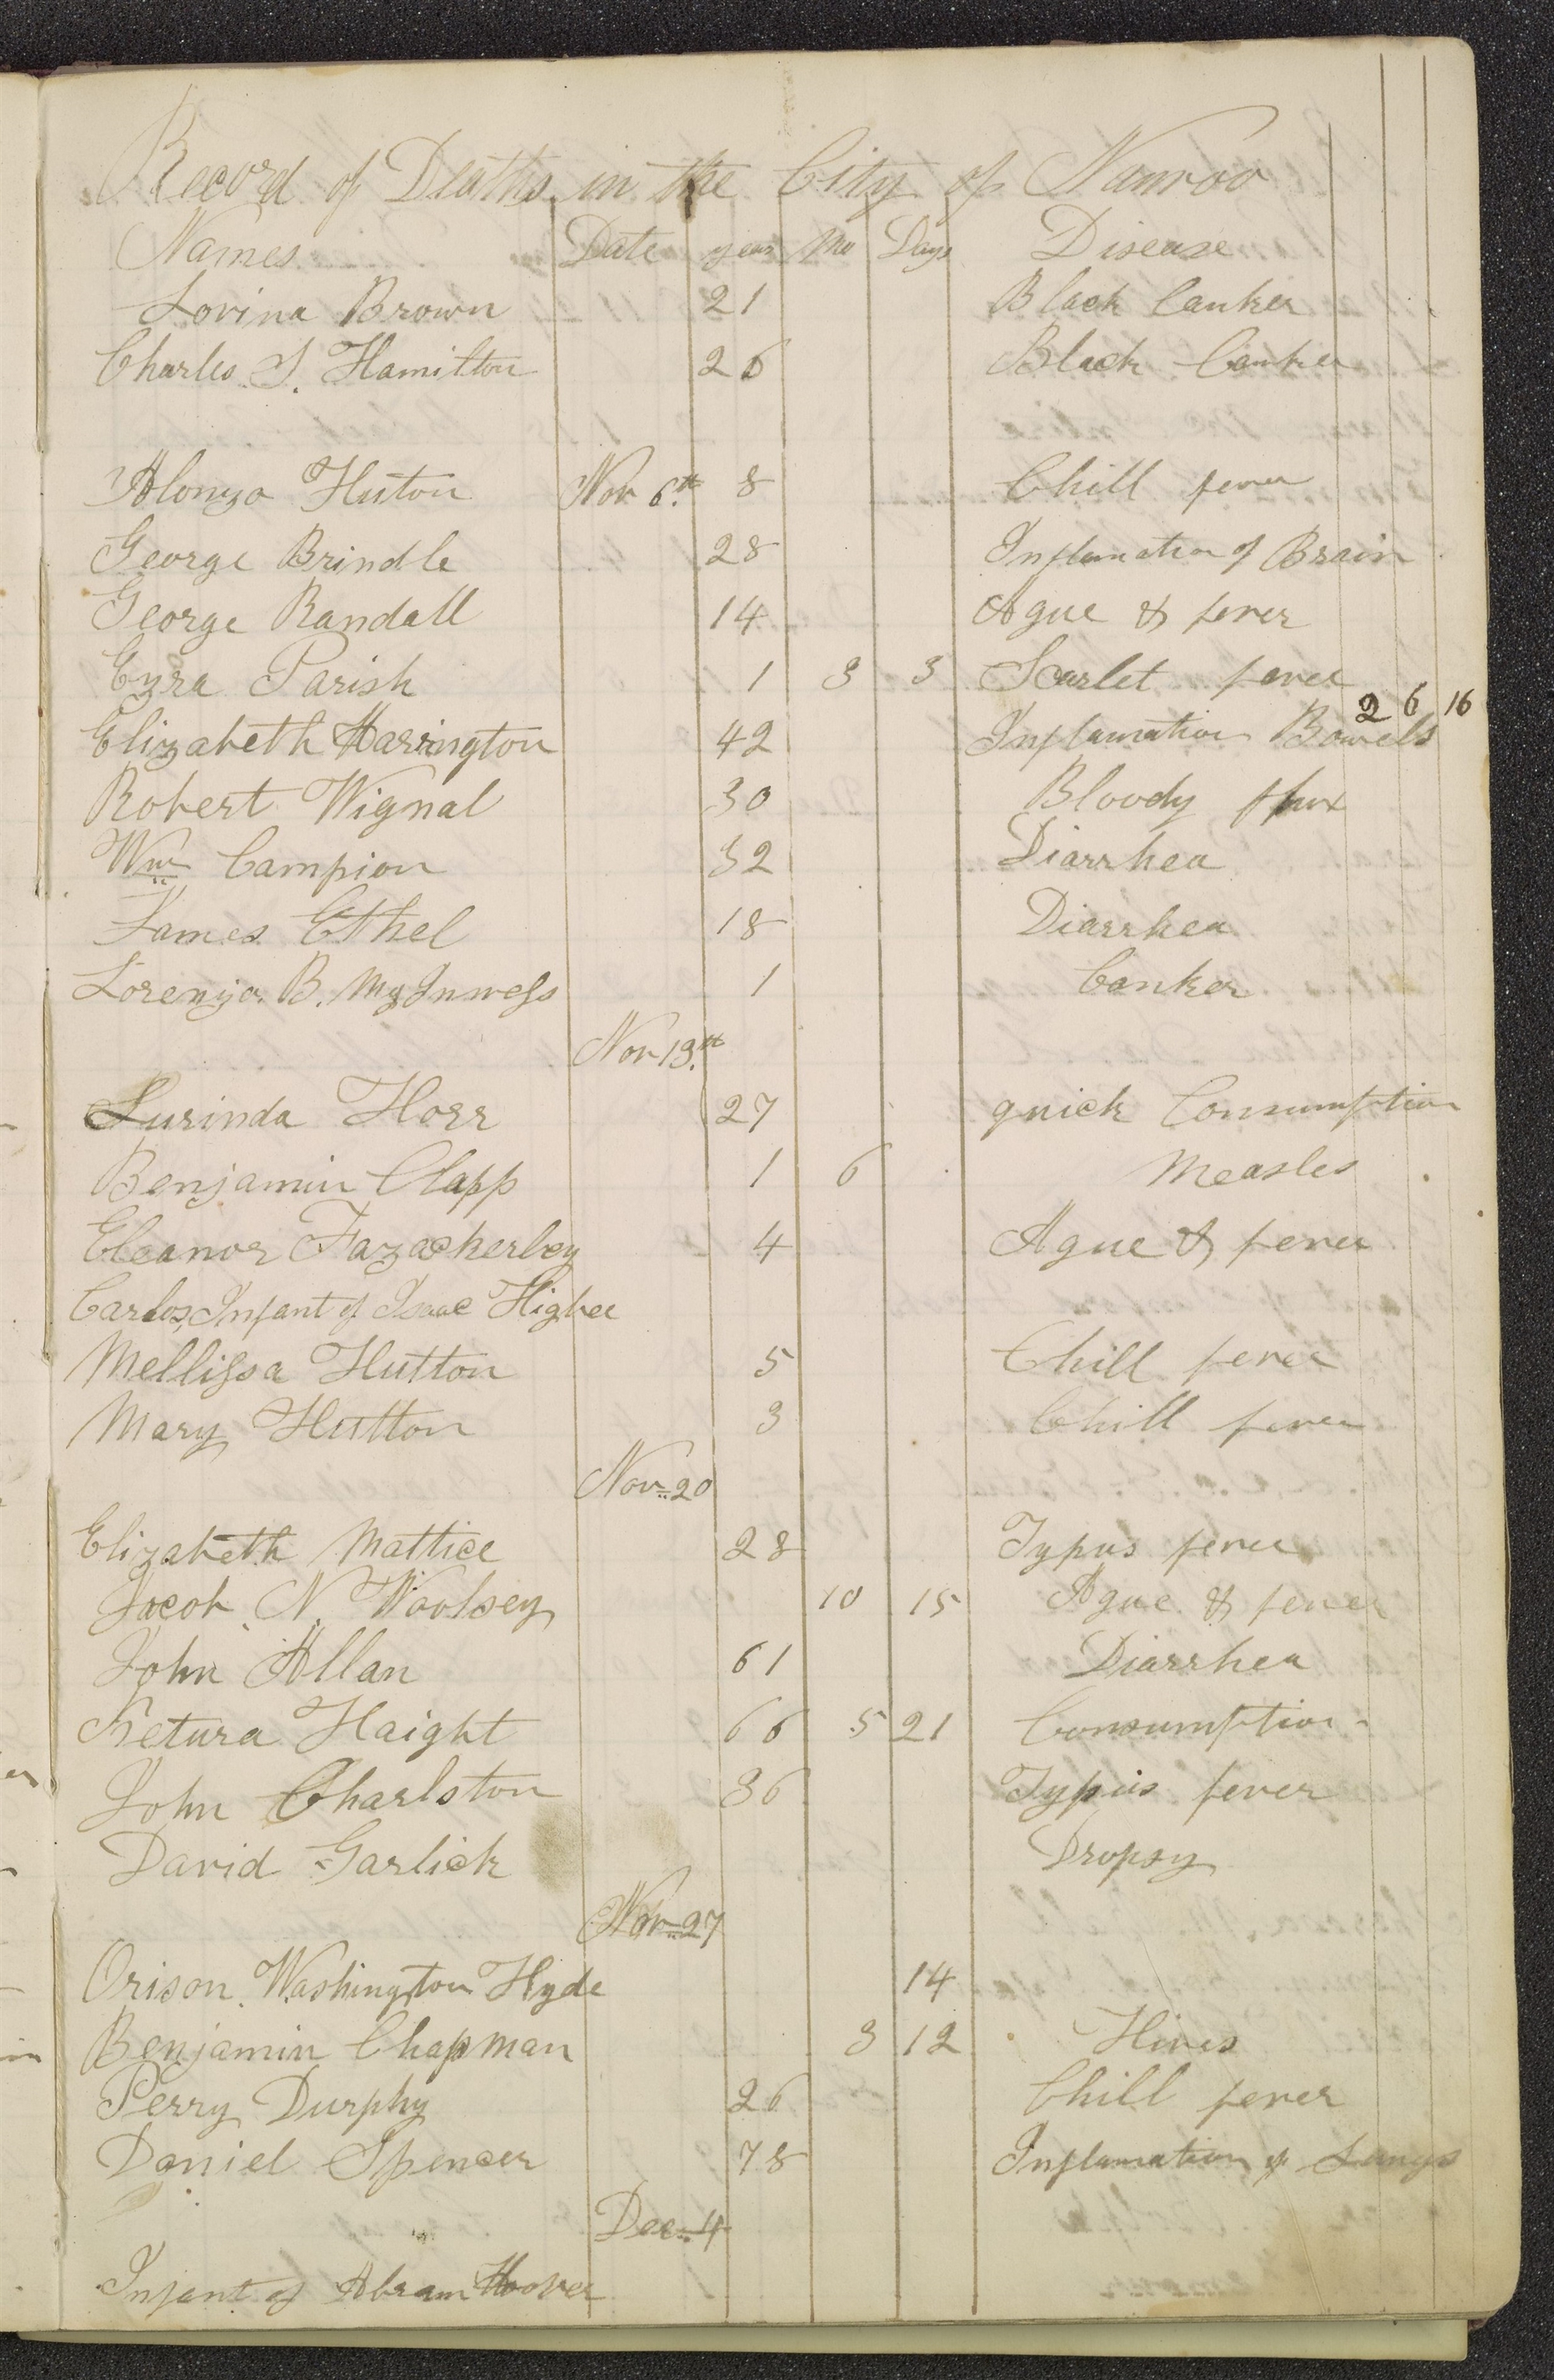 Record of Deaths in the City of Nauvoo
Names Date year Mo Days Disease
Lovina Brown 21 Black Canker
Charles S. Hamilton 26 Black Canker
Alonzo Huton Nov 6.th 8 Chill fever
George Brindle 28 Inflamation of Brain
George Randall 14 Ague & fever
Ezra Parish 1 3 3 Scarlet fever
2 6 16
Elizabeth Harrington 42 Inflamation Bowels
Robert Wignal 30 Bloody flux
Wm Campion 32 Diarrhea
James Ethel 18 Diarrhea
Lorenzo B. 1 Canker
Nov 13.th
Lurinda Horr 27 quick Consumption
Benjamin Clapp 1 6 Measles
Eleanor Fazackerley 4 Ague & fever
Carlos, Infant of Isaac Higbee
Mellissa Hutton 5 Chill fever
Mary Hutton 3 Chill fever
Nov. 20
Elizabeth Mattice 28 Typus fever
Jacob N. Woolsey 10 15 Ague & fever
John Allan 61 Diarrhea
Ketura Haight 66 5 21 Consumption
John Charlston 36 Typus fever
David Garlick Dropsy
Nov. 27
Orison Washington Hyde 14
Benjamin Chapman 3 12 Hives
Perry Durphy 26 Chill fever
Daniel Spencer 78 Inflamation of Lungs
Dec. 4
Infant of Abram Hoover